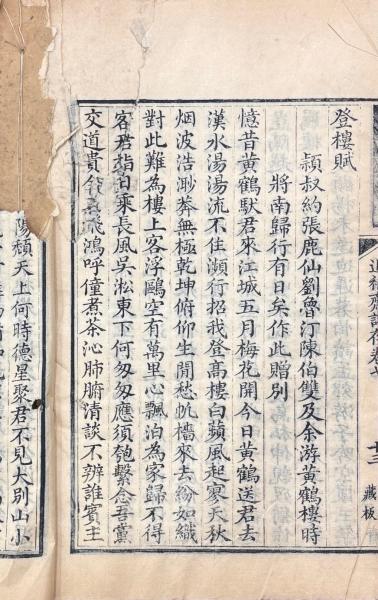 登樓賦
頴叔約張鹿仙劉魯汀陳伯雙及余游黃鶴樓時
將南歸行有日矣作此贈別
憶昔黃鶴馱君來江城五月梅花開今日黃鶴送君去
漢水湯湯流不住瀕行招我登高樓白蘋風起寥天秋
烟波浩渺莽無極乾坤俯仰生閒愁帆檣來去紛如織
對此難為樓上客浮鷗空有萬里心飄泊為家歸不得
客君指日乘長風吳淞東下何匆匆應須匏繫念吾黨
交道貴飛鴻呼僮煮茶沁肺腑清談不辨誰賓主
陽頹天上何時德星聚君不見大別山小
十三
藏板